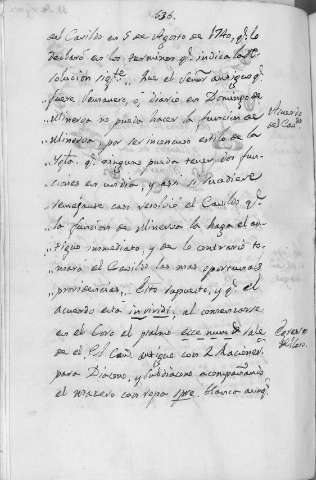 636.
el Cavildo en 5 de Agosto de 1740, qe. lo
declaró en los terminos qe. indica la Re
solucion sigte. „ Que el Señor antiguo qe.
„ fuere semanero, ó diario en Domingo de
„ Minerva no pueda hacer la funcion de
„ Minerva, por ser inconcuso estilo de la
„ Ygla. qe. ninguno pueda tener dos fun-
„ ciones en un dia, y assi si sucediere
„ semejante caso resolvió el Cavildo qe.
„ la funcion de Minerva la haga el an-
„ tiguo inmediato, y de lo contrario to-
„ mará el Cavildo las mas oportunas
„ providencias. „ Esto supuesto, y qe. el
acuerdo esta in viridi, al comenzarse
en el Coro el psalmo ecce nunc sale
de el el Can. antiguo con 2 Racioner.
para Diacono, y Subdiacono acompañando
el macero con ropa spre. blanca aunq.
Acuerdo
del Cav.